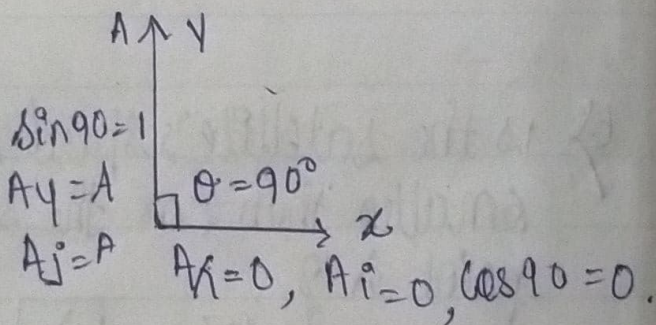 A Y
sin90=1
Ay=A θ=90°
Aj=A x
Ax=0, Ai=0, cos90=0.